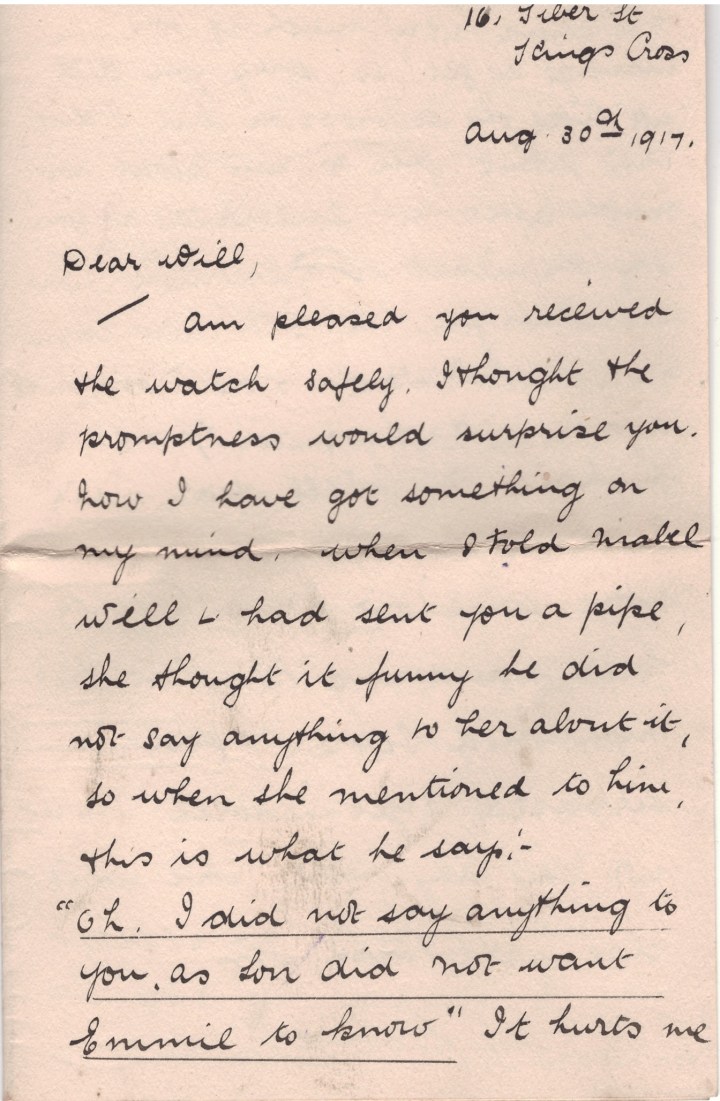 16, Tiber St
Kings Cross
Aug. 30th 1917.
Dear Will,
Am pleased you received
the watch safely. I thought the
promptness would surprise you.
Now I have got something on
my mind. When I told Mabel
Will L had sent you a pipe,
she thought it funny he did
not say anything to her about it,
so when she mentioned to him,
this is what he says:-
"Oh. I did not say anything to
you, as Son did not want
Emmie to know" It hurts me